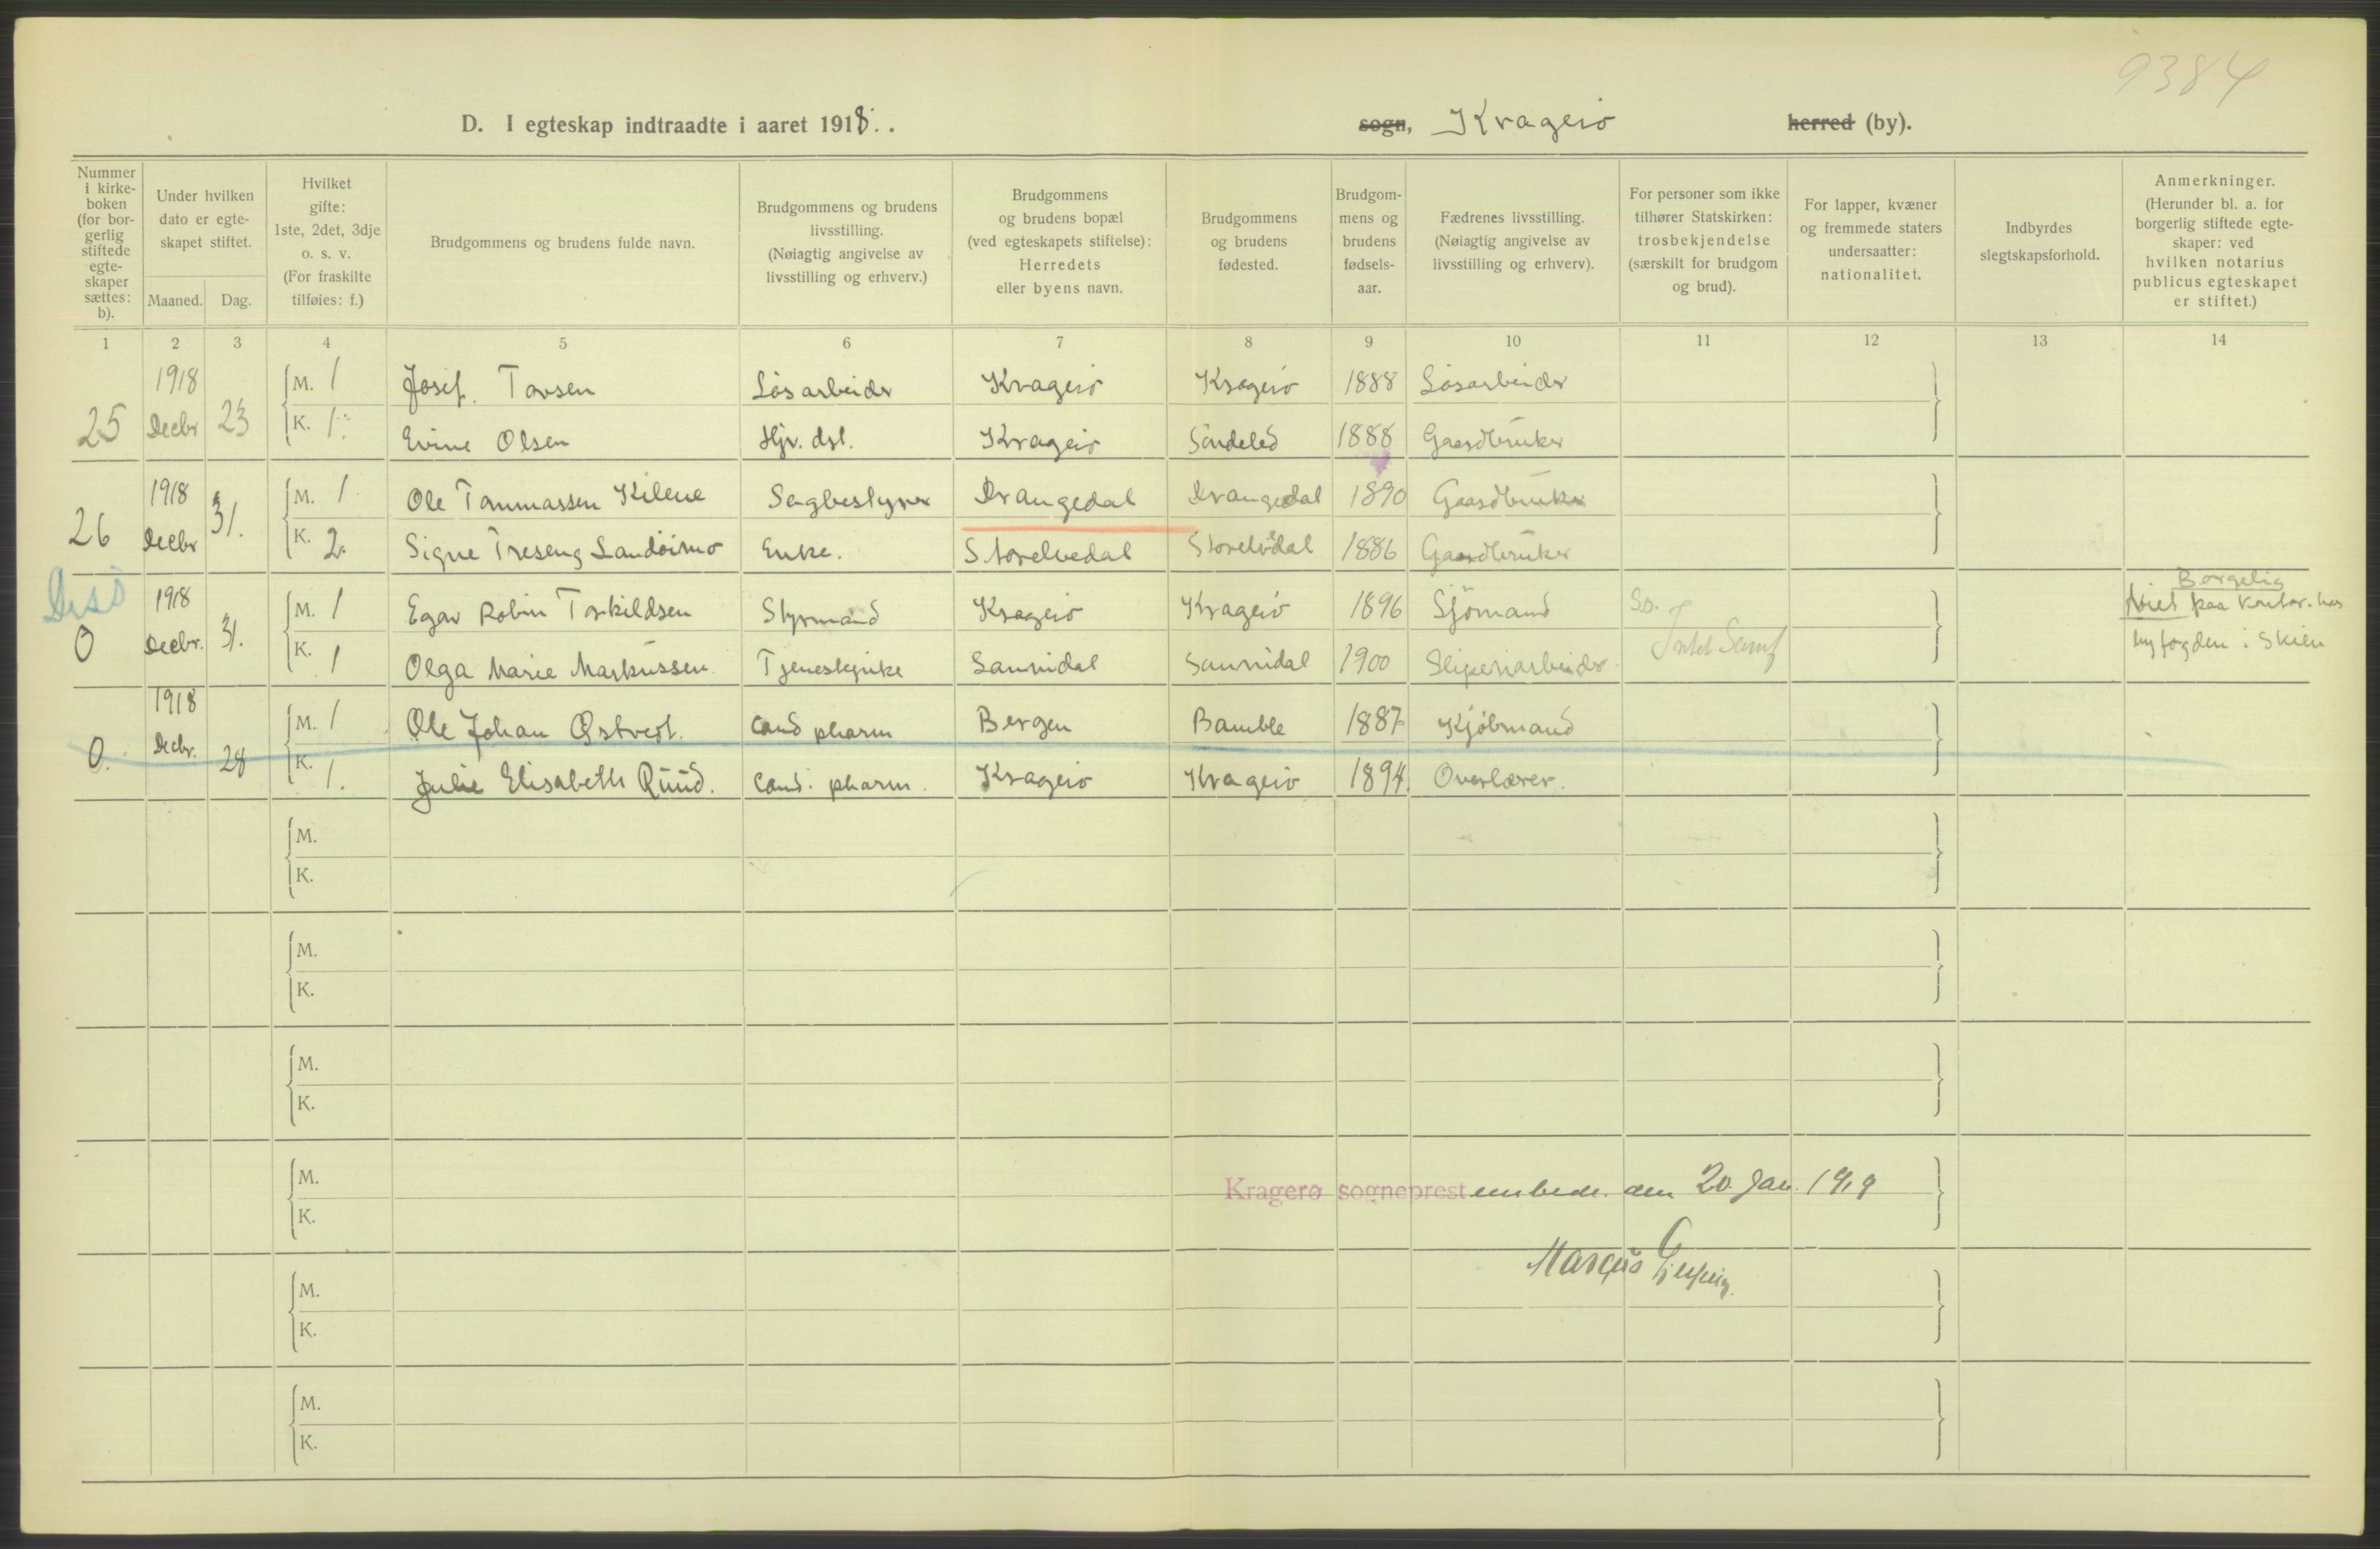 9384
D. I egteskap indtraadte i aaret 1918. . sogn, Kragerö herred (by).
Nummer i kirke-boken (for bor-gerlig stiftede egte-skaper sættes: b).
Under hvilken dato er egte-skapet stiftet.
Maaned. Dag.
Hvilket gifte: 1ste, 2det, 3dje o. s. v. (For fraskilte tilføies: f.)
Brudgommens og brudens fulde navn.
Brudgommens og brudens livsstilling. (Nøiagtig angivelse av livsstilling og erhverv.)
Brudgommens og brudens bopæl (ved egteskapets stiftelse): Herredets eller byens navn.
Brudgommens og brudens fødested.
Brudgom-mens og brudens fødsels-aar.
Fædrenes livsstilling. (Nøiagtig angivelse av livsstilling og erhverv).
For personer som ikke tilhører Statskirken: trosbekjendelse (særskilt for brudgom og brud).
For lapper, kvæner og fremmede staters undersaatter: nationalitet.
Indbyrdes slegtskapsforhold.
Anmerkninger. (Herunder bl. a. for borgerlig stiftede egte-skaper: ved hvilken notarius publicus egteskapet er stiftet.)
1 2 3 4 5 6 7 8 9 10 11 12 13 14
25 1918 Decbr 23 M. 1 Josef. Torsen Lösarbeider Kragerö Kragerö 1888 Lösarbeider
K. 1. Evine Olsen Hjv. dat. Kragerö Söndeled 1888 Gaardbruker
26 1918 Decbr 31. M. 1 Ole Tommassen Kilene Sagbestyrer Drangedal Drangedal 1890 Gaardbruker
K. 2. Signe Treseng Landöimo Enke. Storelvedal Storelvdal 1886 Gaardbruker
Diss
0 1918 Decbr. 31. M. 1 Egar Robin Torkildsen Styrmand Kragerö Kragerö 1896 Sjömand S.o. Borgelig Viet paa kontor. hos
K. 1 Olga Marie Markussen Tjenestepike Sannidal Sannidal 1900 Sliperiarbeider Intet Samf byfogden i Skien
0. 1918 Decbr. 28 M. 1 Ole Johan Østvedt. Cand pharm Bergen Bamble 1887 Kjöbmand
K. 1. Julie Elisabeth Ruud. Cand. pharm. Kragerö Kragerö 1894 Overlærer.
M.
K.
M.
K.
M.
K.
M. Kragerø sogneprest embede. den 20. Jan. 1919
K.
Marcus
M.
K.
M.
K.